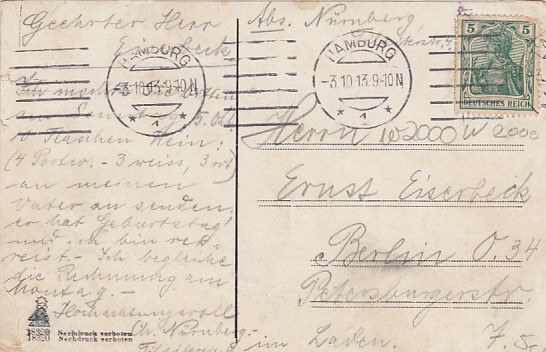 Geehrter Herr
Eiserbeck
Ich möchte Sie bitten
am Sonntag, 5. Okt.
10 Flaschen Wein:
(4 Portw. - 3 weiss, 3 rot)
an meinen
Vater zu senden,
er hat Geburtstag!
und ich bin ver-
reist. - Ich begleiche
die Rechnung am
Montag. -
Hochachtungsvoll
Ch. Nürnberg.
18320
Nachdruck verboten
Abs. Nürnberg,
HAMBURG
-3.10.13.9-10N
* 1 *
HAMBURG
-3.10.13.9-10N
* 1 *
5 5
DEUTSCHES REICH
Herrn W2000 W 2000
Ernst Eiserbeck
Berlin O. 34
Petersburgerstr.
im Laden. 7.5.